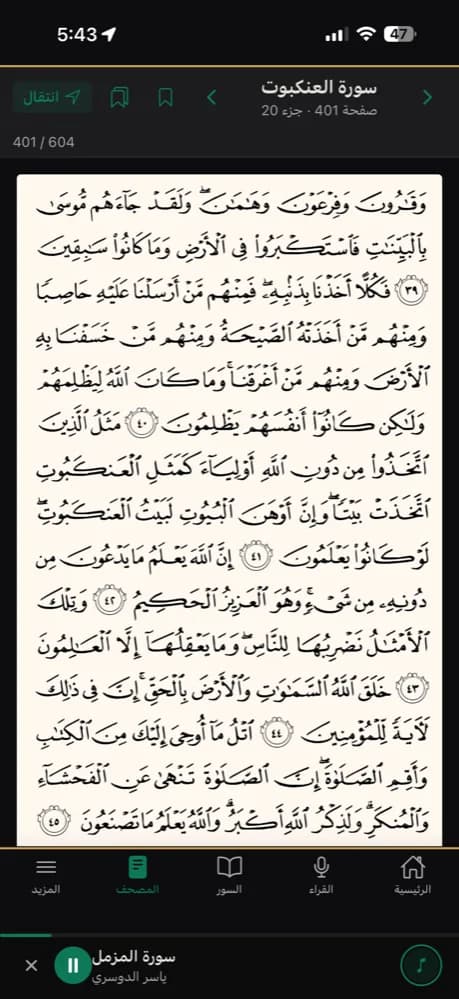 5:43
47
سورة العنكبوت
صفحة 401 · جزء 20
انتقال
401 / 604
وَقَٰرُونَ وَفِرْعَوْنَ وَهَٰمَٰنَۖ وَلَقَدْ جَآءَهُم مُّوسَىٰ
بِالْبَيِّنَٰتِ فَاسْتَكْبَرُوا۟ فِى الْأَرْضِ وَمَا كَانُوا۟ سَٰبِقِينَ
٣٩ فَكُلًّا أَخَذْنَا بِذَنۢبِهِۦۖ فَمِنْهُم مَّنْ أَرْسَلْنَا عَلَيْهِ حَاصِبًا
وَمِنْهُم مَّنْ أَخَذَتْهُ الصَّيْحَةُ وَمِنْهُم مَّنْ خَسَفْنَا بِهِ
الْأَرْضَ وَمِنْهُم مَّنْ أَغْرَقْنَاۚ وَمَا كَانَ اللَّهُ لِيَظْلِمَهُمْ
وَلَٰكِن كَانُوٓا۟ أَنفُسَهُمْ يَظْلِمُونَ ٤٠ مَثَلُ الَّذِينَ
اتَّخَذُوا۟ مِن دُونِ اللَّهِ أَوْلِيَآءَ كَمَثَلِ الْعَنكَبُوتِ
اتَّخَذَتْ بَيْتًاۖ وَإِنَّ أَوْهَنَ الْبُيُوتِ لَبَيْتُ الْعَنكَبُوتِۖ
لَوْ كَانُوا۟ يَعْلَمُونَ ٤١ إِنَّ اللَّهَ يَعْلَمُ مَا يَدْعُونَ مِن
دُونِهِۦ مِن شَىْءٍۚ وَهُوَ الْعَزِيزُ الْحَكِيمُ ٤٢ وَتِلْكَ
الْأَمْثَٰلُ نَضْرِبُهَا لِلنَّاسِۖ وَمَا يَعْقِلُهَآ إِلَّا الْعَٰلِمُونَ
٤٣ خَلَقَ اللَّهُ السَّمَٰوَٰتِ وَالْأَرْضَ بِالْحَقِّۚ إِنَّ فِى ذَٰلِكَ
لَءَايَةً لِّلْمُؤْمِنِينَ ٤٤ اتْلُ مَآ أُوحِىَ إِلَيْكَ مِنَ الْكِتَٰبِ
وَأَقِمِ الصَّلَوٰةَۖ إِنَّ الصَّلَوٰةَ تَنْهَىٰ عَنِ الْفَحْشَآءِ
وَالْمُنكَرِۗ وَلَذِكْرُ اللَّهِ أَكْبَرُۗ وَاللَّهُ يَعْلَمُ مَا تَصْنَعُونَ ٤٥
الرئيسية
القراء
السور
المصحف
المزيد
سورة المزمل
ياسر الدوسري